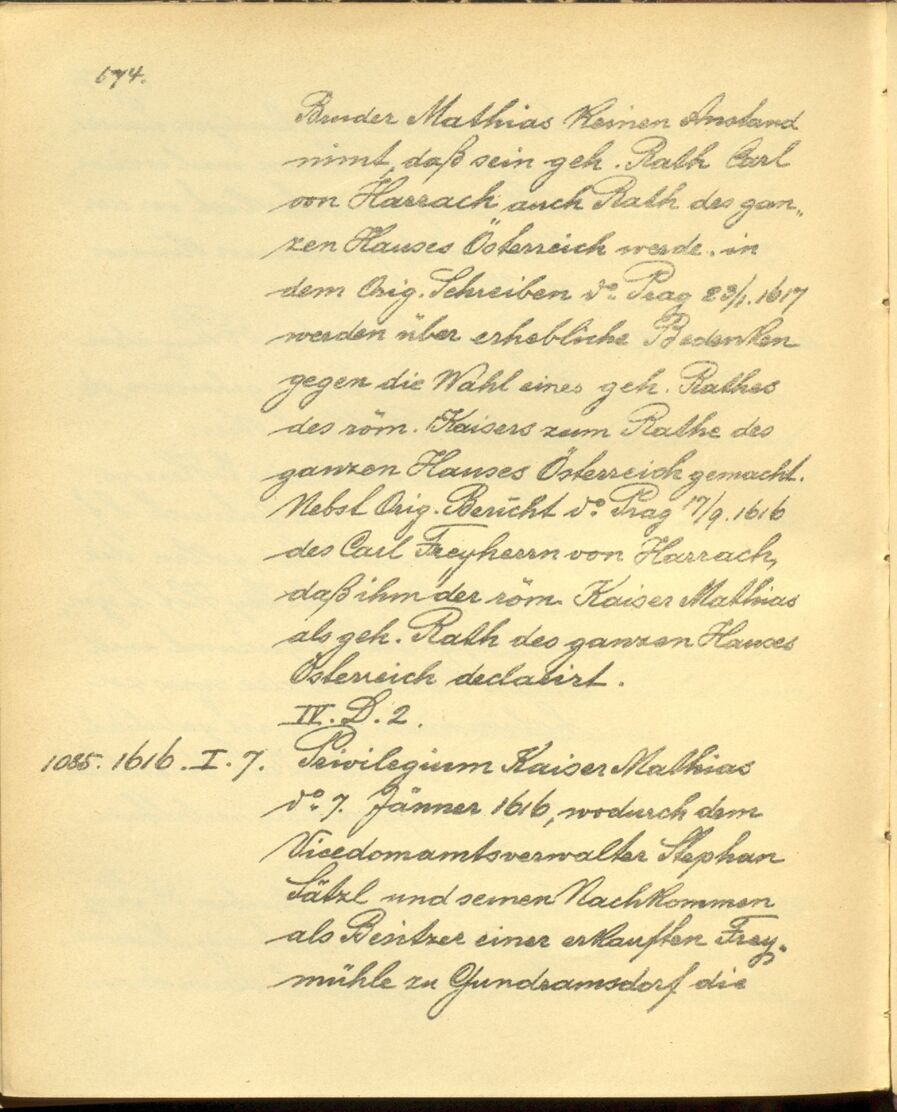 674.
Bruder Mathias keinen Anstand
nimt, daß sein geh. Rath Carl
von Harrach auch Rath des gan„
zen Hauses Österreich werde. in
dem Orig. Schreiben do. Prag 23/1. 1617
werden über erhebliche Bedenken
gegen die Wahl eines geh. Rathes
des röm. Kaisers zum Rathe des
ganzen Hauses Österreich gemacht.
Nebst Orig. Bericht do. Prag 17/9. 1616
des Carl Freyherrn von Harrach,
daß ihm der röm. Kaiser Mathias
als geh. Rath des ganzen Hauses
Österreich declarirt.
IV. D. 2.
1085. 1616. I. 7. Privilegium Kaiser Mathias
do. 7. Jänner 1616, wodurch dem
Vicedomamtsverwalter Stephan
und seinen Nachkommen
als Besitzer einer erkauften Frey„
mühle zu Gundramsdorf die